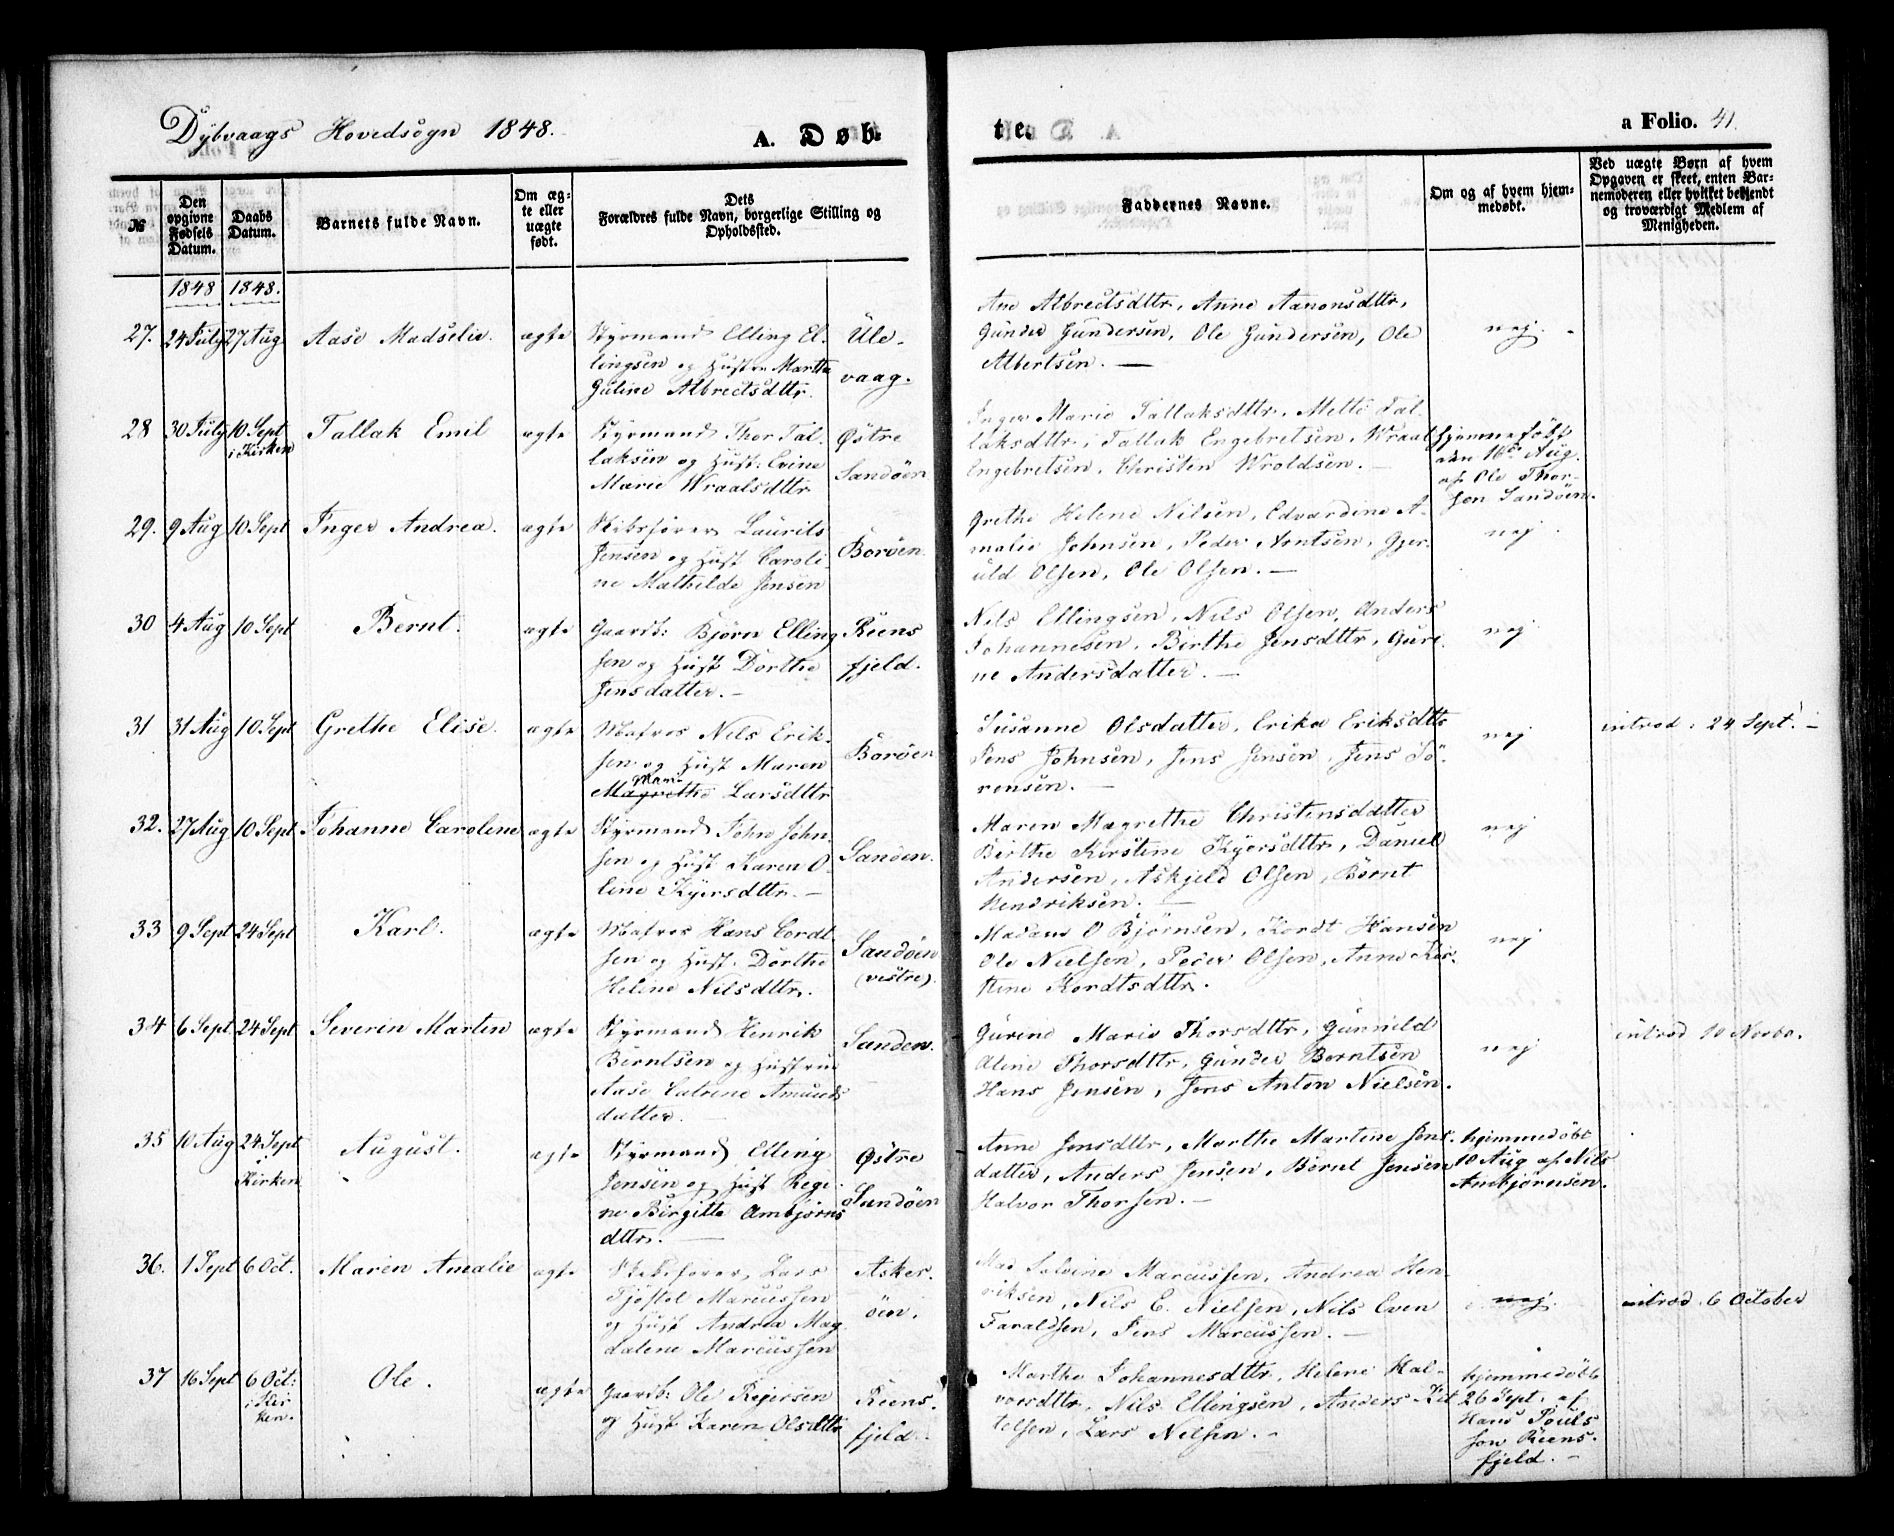 Dybvaags Hovedsogn 1848.
A. Døb-
te.
a Folio. 41.
№
Den opgivne Fødsels Datum.
Daabs Datum.
Barnets fulde Navn.
Om æg-
te eller
uægte
født.
Dets
Forældres fulde Navn, borgerlige Stilling og
Opholdssted.
Faddernes Navne.
Om og af hvem hjem-
medøbt.
Ved uægte Børn af hvem
Opgaven er skeet, enten Bar-
nemoderen eller hvilket bekjendt
og troværdigt Medlem af
Menigheden.
1848 1848.
27. 24 July 27 Aug. Aase Madselie. ægte
Styrmand Elling El-
lingsen og Hustru Marthe
Guline Albrectsdttr.
Üle-
vaag.
Ane Albrectsdttr, Anne Aanonsdttr,
Gunder Gundersen, Ole Gundersen, Ole
Albertsen. —
nej.
28 30 July 10 Sept i Kirken Tallak Emil ægte
Styrmand Thor Tal-
laksen og Hust: Evine
Marie Wraalsdttr
Østre
Sandøen
Inger Marie Tallaksdttr, Mette Tal-
laksdttr, Tallak Engebretsen, Wraal
Engebretsen, Christen Wroldsen. —
hjemmedøbt
den 16de Aug.
af Ole Thor-
sen Sandøen.
29. 9 Aug 10 Sept Inger Andrea. ægte
Skibsfører Laurits
Jensen og Hust Caroli-
ne Mathilde Jensen
Borøen.
Grethe Helene Nilsen, Edvardine A-
malie Johnsen, Peder Arntsen, Gjer-
uld Olsen, Ole Olsen. —
nej
30 4 Aug 10 Sept Bernt. ægte
Gaardb: Bjørn Elling
sen og Hust Dorthe
Jensdatter. —
Reens
fjeld.
Nils Ellingsen, Nils Olsen, Anders
Johannesen, Birthe Jensdttr, Guri-
ne Andersdatter. —
nej
31 31 Aug 10 Sept Grethe Elise. ægte
Matros Nils Erik-
sen og Hust Maren
Magrethe Larsdttr
Borøen
Susanne Olsdatter, Erika Eriksdttr
Jens Johnsen, Jens Jensen, Jens Sö-
rensen. —
nej
introd: 24 Sept. —
32. 27 Aug 10 Sept Johanne Caroline ægte
Styrmand John John-
sen og Hust Karen O-
line Kjersdttr. —
Sandøen.
Maren Magrethe Christensdatter
Birthe Kirstine Kjersdttr, Daniel
Andersen, Askjeld Olsen, Bernt
Hendriksen. —
nej
33 9 Sept 24 Sept Karl. ægte
Matros Hans Cordt-
sen og Hust. Dorthe
Helene Nilsdttr.
Sandøen
(vestre).
Madam O Bjørnsen, Kordt Hansen
Ole Nielsen, Peder Olsen, Anne Kir-
stine Kordtsdttr.
nej
34 6 Sept 24 Sept Severin Martin ægte
Styrmand Henrik
Berntsen og Hustrue
Aase Catrine Amunds
datter. —
Sanden.
Gurine Marie Thorsdttr, Gunnild
Aline Thorsdttr, Gunder Berntsen
Hans Jensen, Jens Anton Nielsen.
nej
introd 10 Novbr.
35 10 Aug 24 Sept i Kirken August. ægte
Styrmand Elling
Jensen og Hust Regi-
ne Birgitte Ambjørns
dttr. —
Østre
Sandøen
Anne Jensdttr, Marthe Martine Jens-
datter, Anders Jensen, Bernt Jensen
Halvor Thorsen. —
hjemmedøbt
10 Aug af Nils
Ambjørnsen.
36. 1 Sept 6 Oct. Maren Amalie ægte
Skibsfører Lars
Tjøstel Marcussen
og Hust Andrea Mag
dalene Marcussen
Asker-
øen.
Mad Marcussen, Andrea Hen-
riksen, Nils E. Nielsen, Nils Even
Faraldsen, Jens Marcussen. —
nej.
introd. 6 October
37 16 Sept 6 Oct: i Kir ken. Ole. ægte
Gaardb: Ole Reiersen
og Hust Karen Olsdttr
Reens-
fjeld.
Marthe Johannesdttr, Helene Hal-
vorsdttr, Nils Ellingsen, Anders Kit
telsen, Lars Nilsen. —
hjemmedøbt
26 Sept. af
Hans Pouls
sen Reens-
fjeld. —